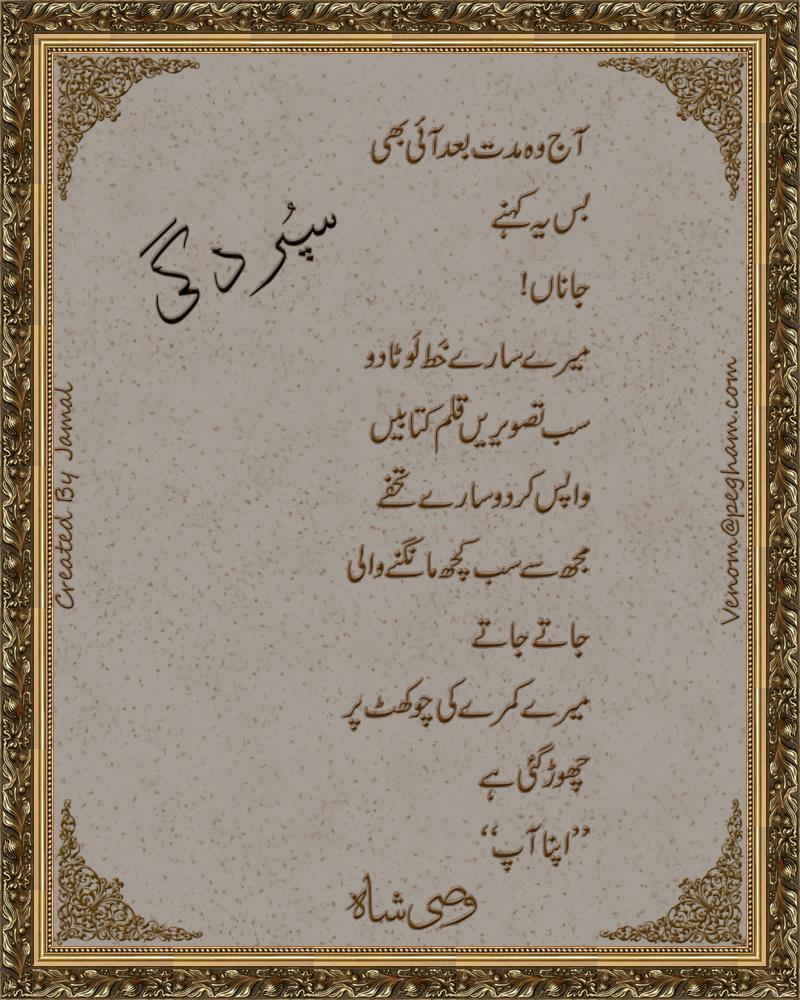 سپُردگی
آج وہ مدت بعد آئی بھی
بس یہ کہنے
جاناں!
میرے سارے خط لَوٹا دو
سب تصویریں قلم کتابیں
واپس کر دو سارے تحفے
مجھ سے سب کچھ مانگنے والی
جاتے جاتے
میرے کمرے کی چوکھٹ پر
چھوڑ گئی ہے
”اپنا آپ“
وصی شاہ
Created By Jamal
Venom@pegham.com